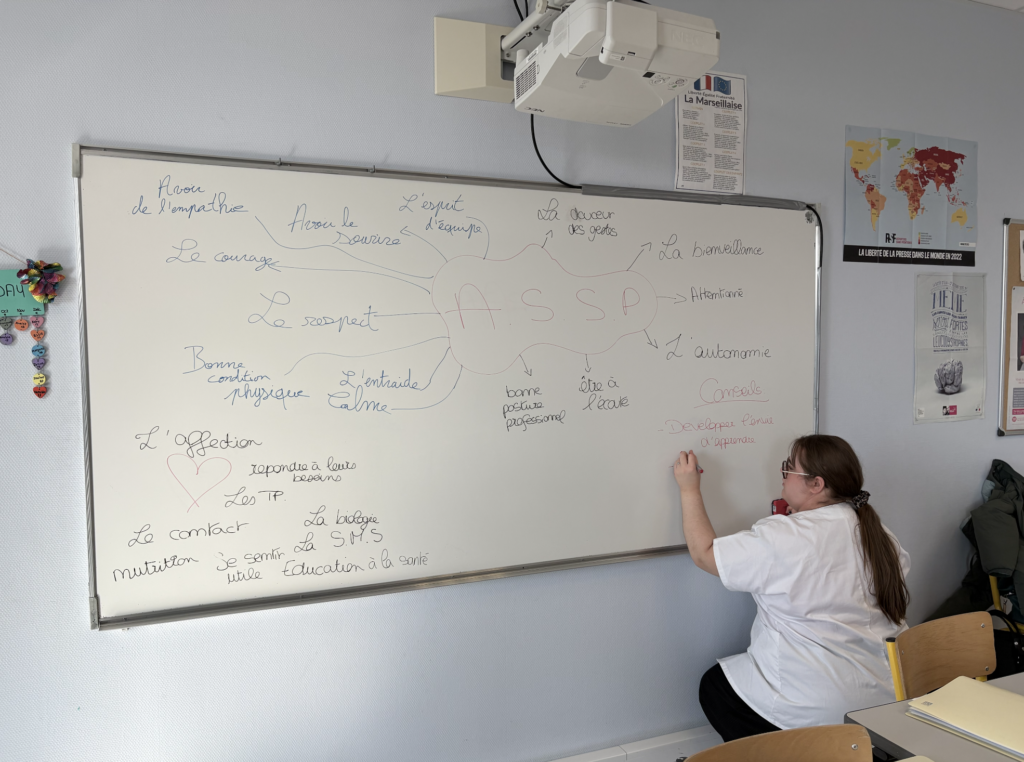 Avoir
de l'empathie
Avoir le
sourire
L'esprit
d'équipe
La douceur
des gestes
La bienveillance
Le courage
Attentionné
A.S.S.P
Le respect
L'autonomie
Bonne
condition
physique
L'entraide
Calme
bonne
posture
professionnel
être à
l'écoute
Conseils
- Développer l'envie
d'apprendre
L'affection
repondre à leurs
besoins
Les TP
Le contact
La biologie
La S.M.S
nutrition
se sentir
utile
Education à la santé
La Marseillaise
RSF
LA LIBERTÉ DE LA PRESSE DANS LE MONDE EN 2022
DAY